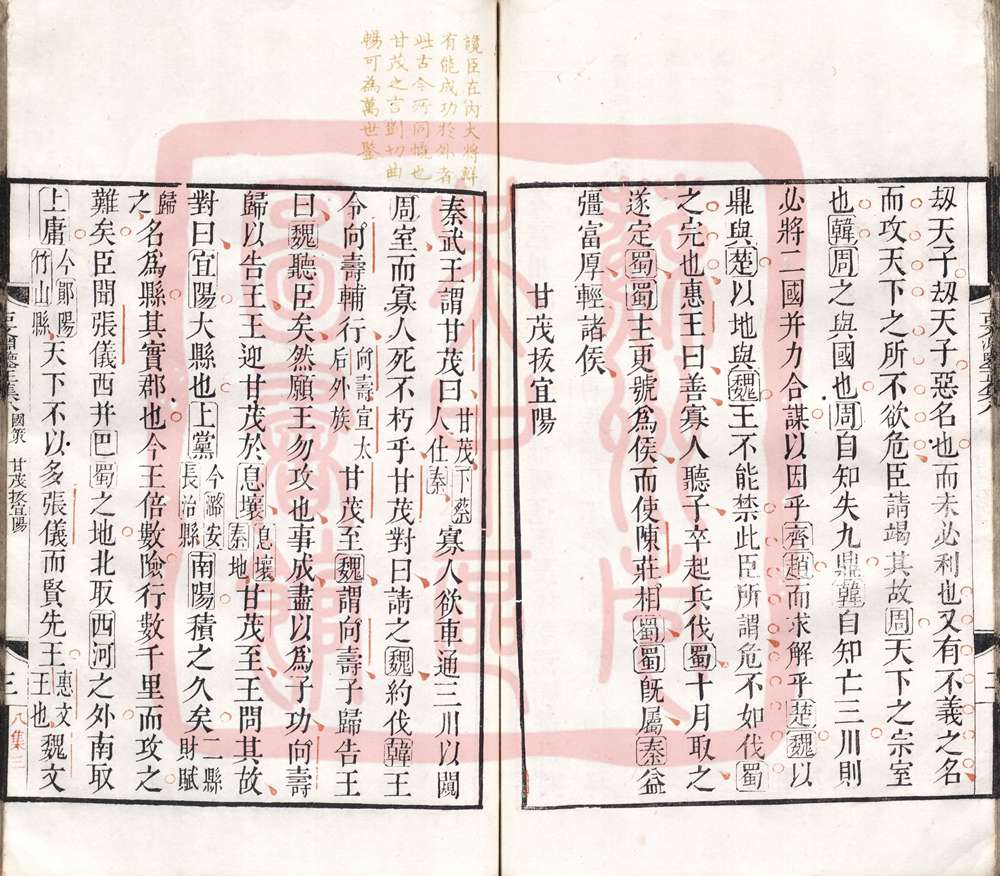 劫天子劫天子惡名也而未必利也又有不義之名
而攻天下之所不欲危臣請竭其故周天下之宗室
也韓周之與國也周自知失九鼎韓自知亡三川則
必將二國并力合謀以因乎齊趙而求解乎楚魏以
鼎與楚以地與魏王不能禁此臣所謂危不如伐蜀
之完也惠王曰善寡人聽子卒起兵伐蜀十月取之
遂定蜀蜀主更號為侯而使陳莊相蜀蜀旣屬秦益
彊富厚輕諸侯
甘茂拔宜陽
讒臣在內大將鮮
有能成功於外者
此古今所同慨也
甘茂之言剴切曲
暢可為萬世鑒
秦武王謂甘茂曰甘茂下蔡人仕秦寡人欲車通三川以闚
周室而寡人死不朽乎甘茂對曰請之魏約伐韓王
令向壽輔行向壽宣太后外族甘茂至魏謂向壽子歸告王
曰魏聽臣矣然願王勿攻也事成盡以為子功向壽
歸以告王王迎甘茂於息壤息壤秦地甘茂至王問其故
對曰宜陽大縣也上黨今潞安長治縣南陽積之久矣二縣財賦
歸
之名為縣其實郡也今王倍數險行數千里而攻之
難矣臣聞張儀西并巴蜀之地北取西河之外南取
上庸今鄖陽竹山縣天下不以多張儀而賢先王惠文王也魏文
國策
甘茂拔宜陽
三
八集三